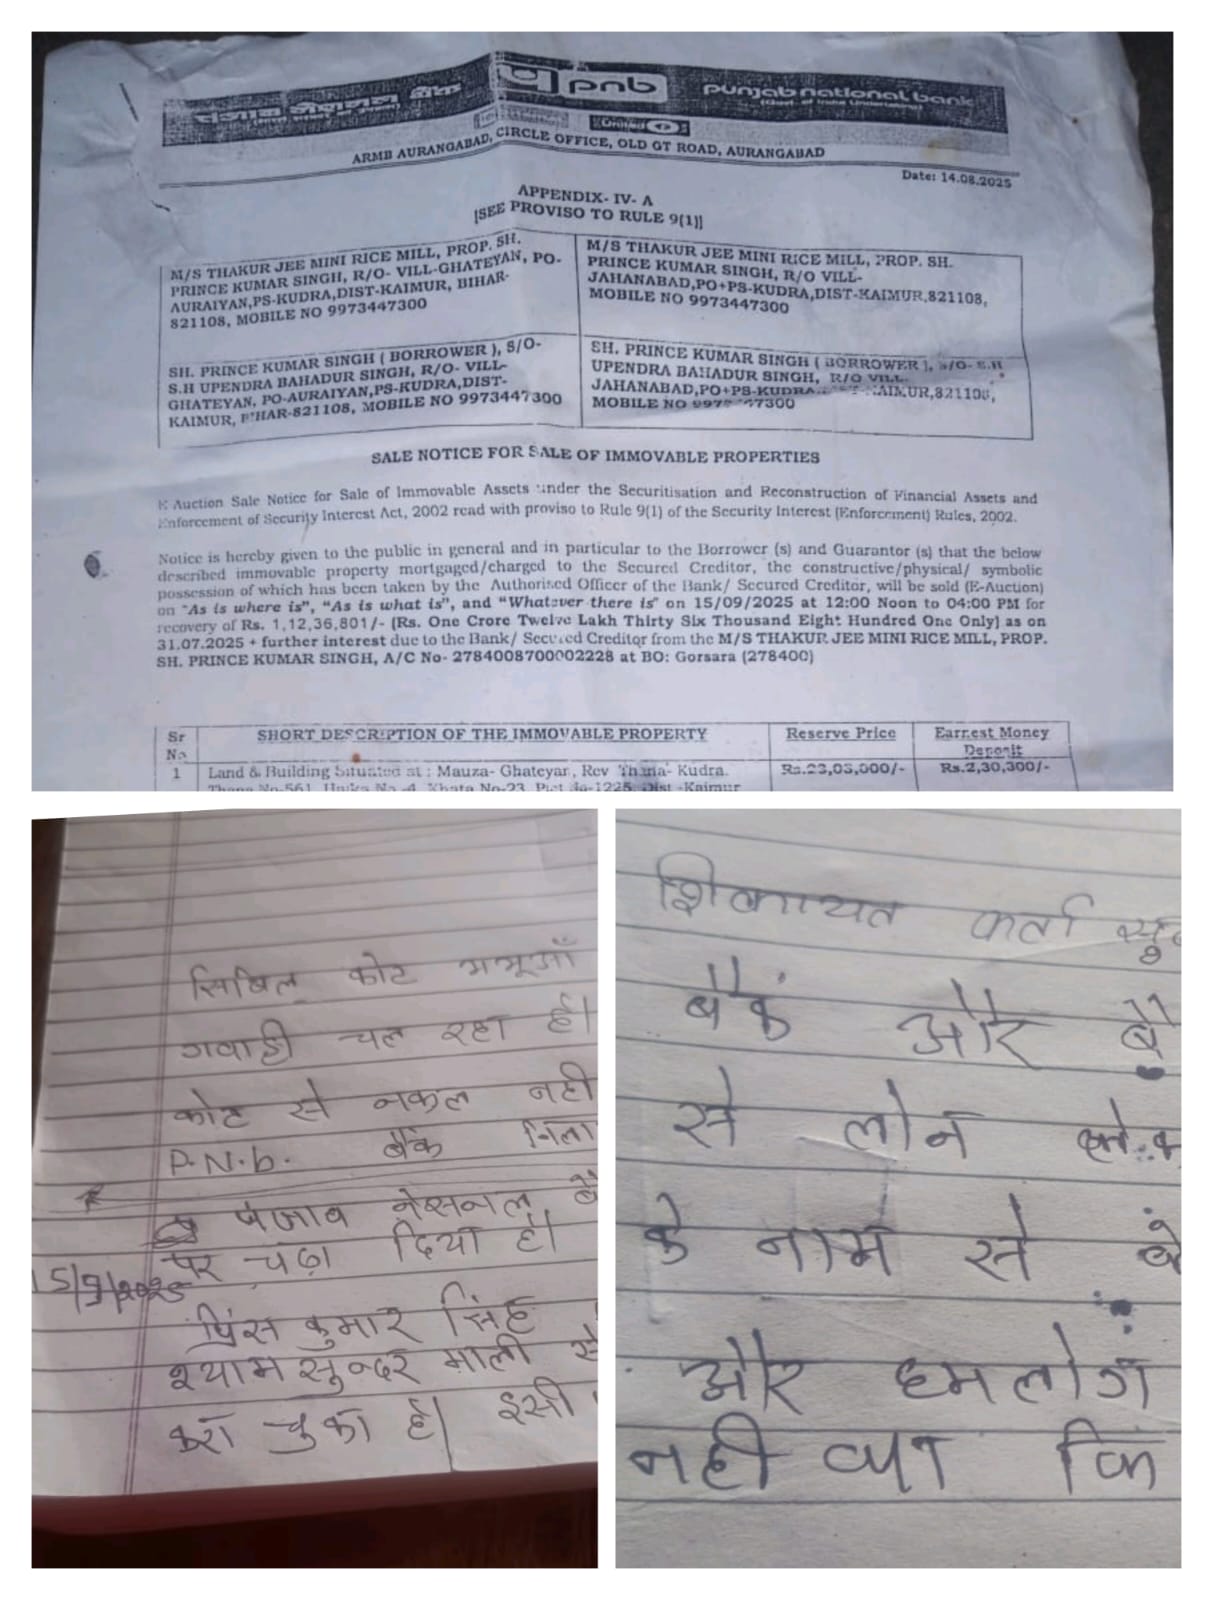 पंजाब नैशनल बैंक
pnb
punjab national bank
(Govt. of India Undertaking)
United
ARMB AURANGABAD, CIRCLE OFFICE, OLD GT ROAD, AURANGABAD
Date: 14.08.2025
APPENDIX- IV- A
[SEE PROVISO TO RULE 9(1)]
M/S THAKUR JEE MINI RICE MILL, PROP. SH.
PRINCE KUMAR SINGH, R/O- VILL-GHATEYAN, PO-
AURAIYAN,PS-KUDRA,DIST-KAIMUR, BIHAR-
821108, MOBILE NO 9973447300
M/S THAKUR JEE MINI RICE MILL, PROP. SH.
PRINCE KUMAR SINGH, R/O VILL-
JAHANABAD,PO+PS-KUDRA,DIST-KAIMUR,821108,
MOBILE NO 9973447300
SH. PRINCE KUMAR SINGH ( BORROWER ), S/O-
S.H UPENDRA BAHADUR SINGH, R/O- VILL-
GHATEYAN, PO-AURAIYAN,PS-KUDRA,DIST-
KAIMUR, BIHAR-821108, MOBILE NO 9973447300
SH. PRINCE KUMAR SINGH ( BORROWER ), S/O- S.H
UPENDRA BAHADUR SINGH, R/O VILL-
JAHANABAD,PO+PS-KUDRA, KAIMUR,821108,
MOBILE NO
SALE NOTICE FOR SALE OF IMMOVABLE PROPERTIES
E-Auction Sale Notice for Sale of Immovable Assets under the Securitisation and Reconstruction of Financial Assets and
Enforcement of Security Interest Act, 2002 read with proviso to Rule 9(1) of the Security Interest (Enforcement) Rules, 2002.
Notice is hereby given to the public in general and in particular to the Borrower (s) and Guarantor (s) that the below
described immovable property mortgaged/charged to the Secured Creditor, the constructive/physical/ symbolic
possession of which has been taken by the Authorised Officer of the Bank/ Secured Creditor, will be sold (E-Auction)
on "As is where is", "As is what is", and "Whatever there is" on 15/09/2025 at 12:00 Noon to 04:00 PM for
recovery of Rs. 1,12,36,801/- (Rs. One Crore Twelve Lakh Thirty Six Thousand Eight Hundred One Only) as on
31.07.2025 + further interest due to the Bank/ Secured Creditor from the M/S THAKUR JEE MINI RICE MILL, PROP.
SH. PRINCE KUMAR SINGH, A/C No- 2784008700002228 at BO: Gorsara (278400)
Sr No
SHORT DESCRIPTION OF THE IMMOVABLE PROPERTY
Reserve Price
Earnest Money Deposit
1
Land & Building Situated at : Mauza- Ghateyan, Rev Thana- Kudra.
Rs.23,03,000/-
Rs.2,30,300/-
Thana No-561, Khata No-23, Plot No-1225, Dist -Kaimur
सिबिल कोट भभूआँ
गवाही चल रहा है।
कोट से नकल नही
P.N.b. बैंक मिला
पंजाव नेसनल बै
पर चढ़ा दिया है।
15/9/2025
प्रिंस कुमार सिंह
श्याम सुन्दर माली से
करा चुका है। इसी
शिकायत कर्ता
बैकं और बै
से लोन
के नाम से
और हमलोग
नही था कि